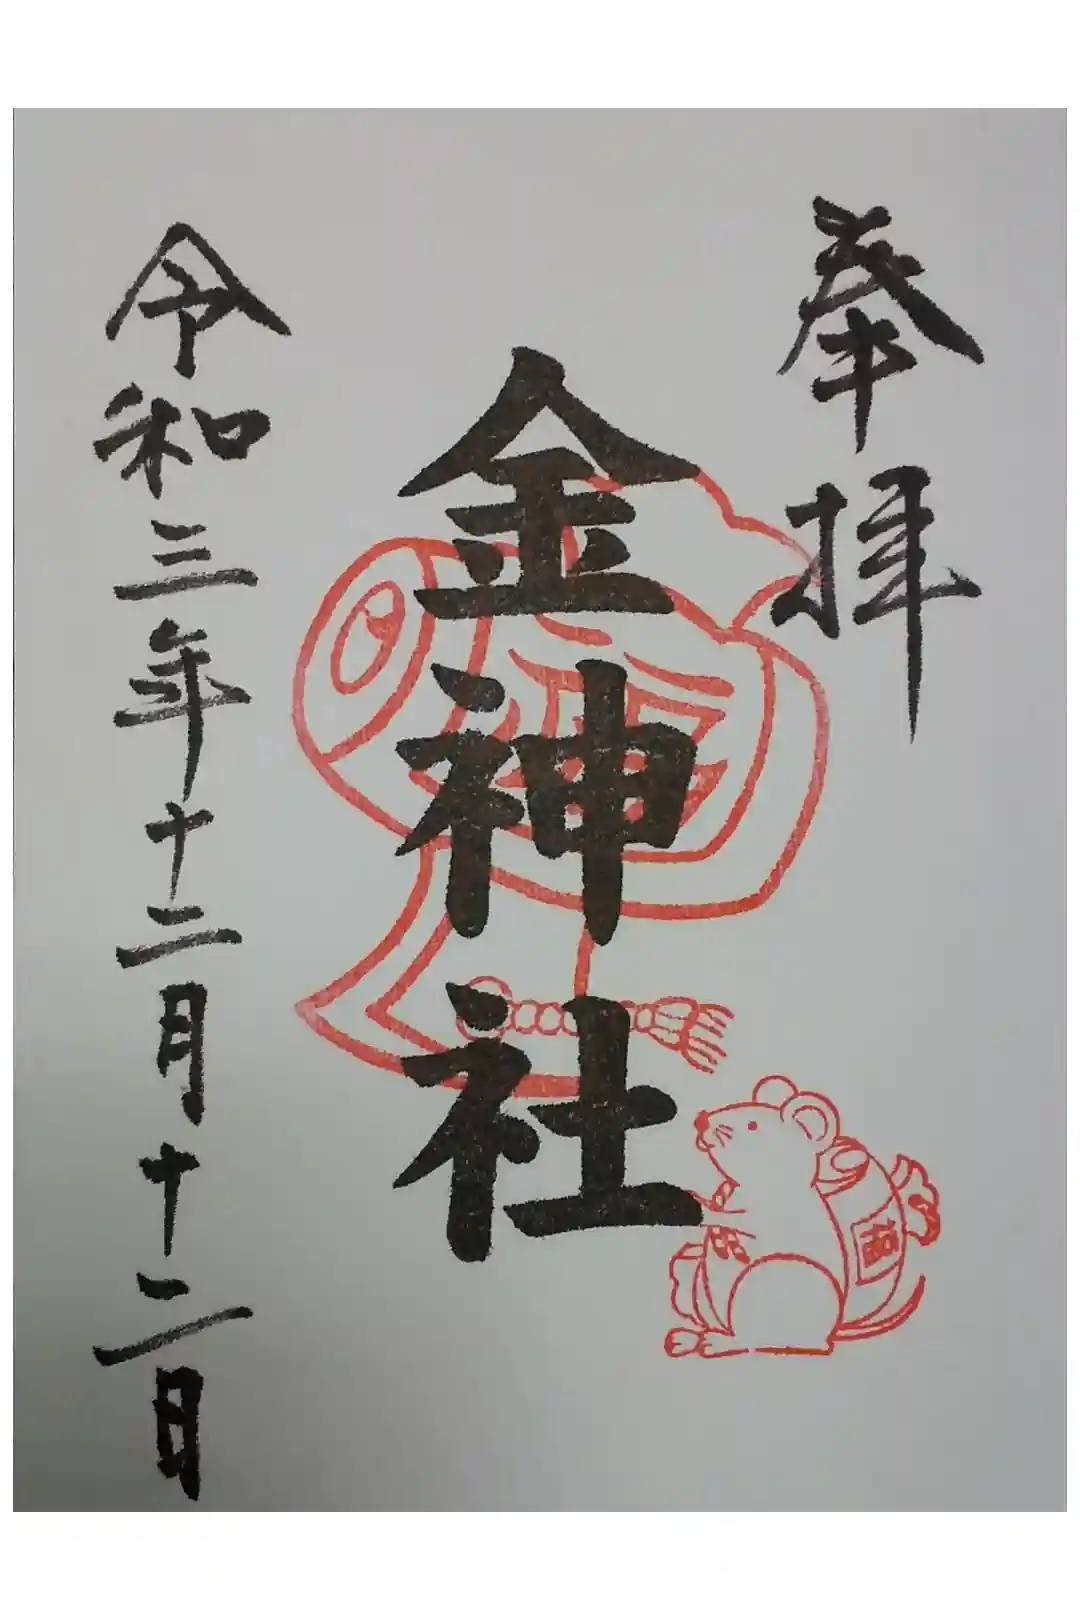 奉拝
金神社
令和三年十二月十二日
福